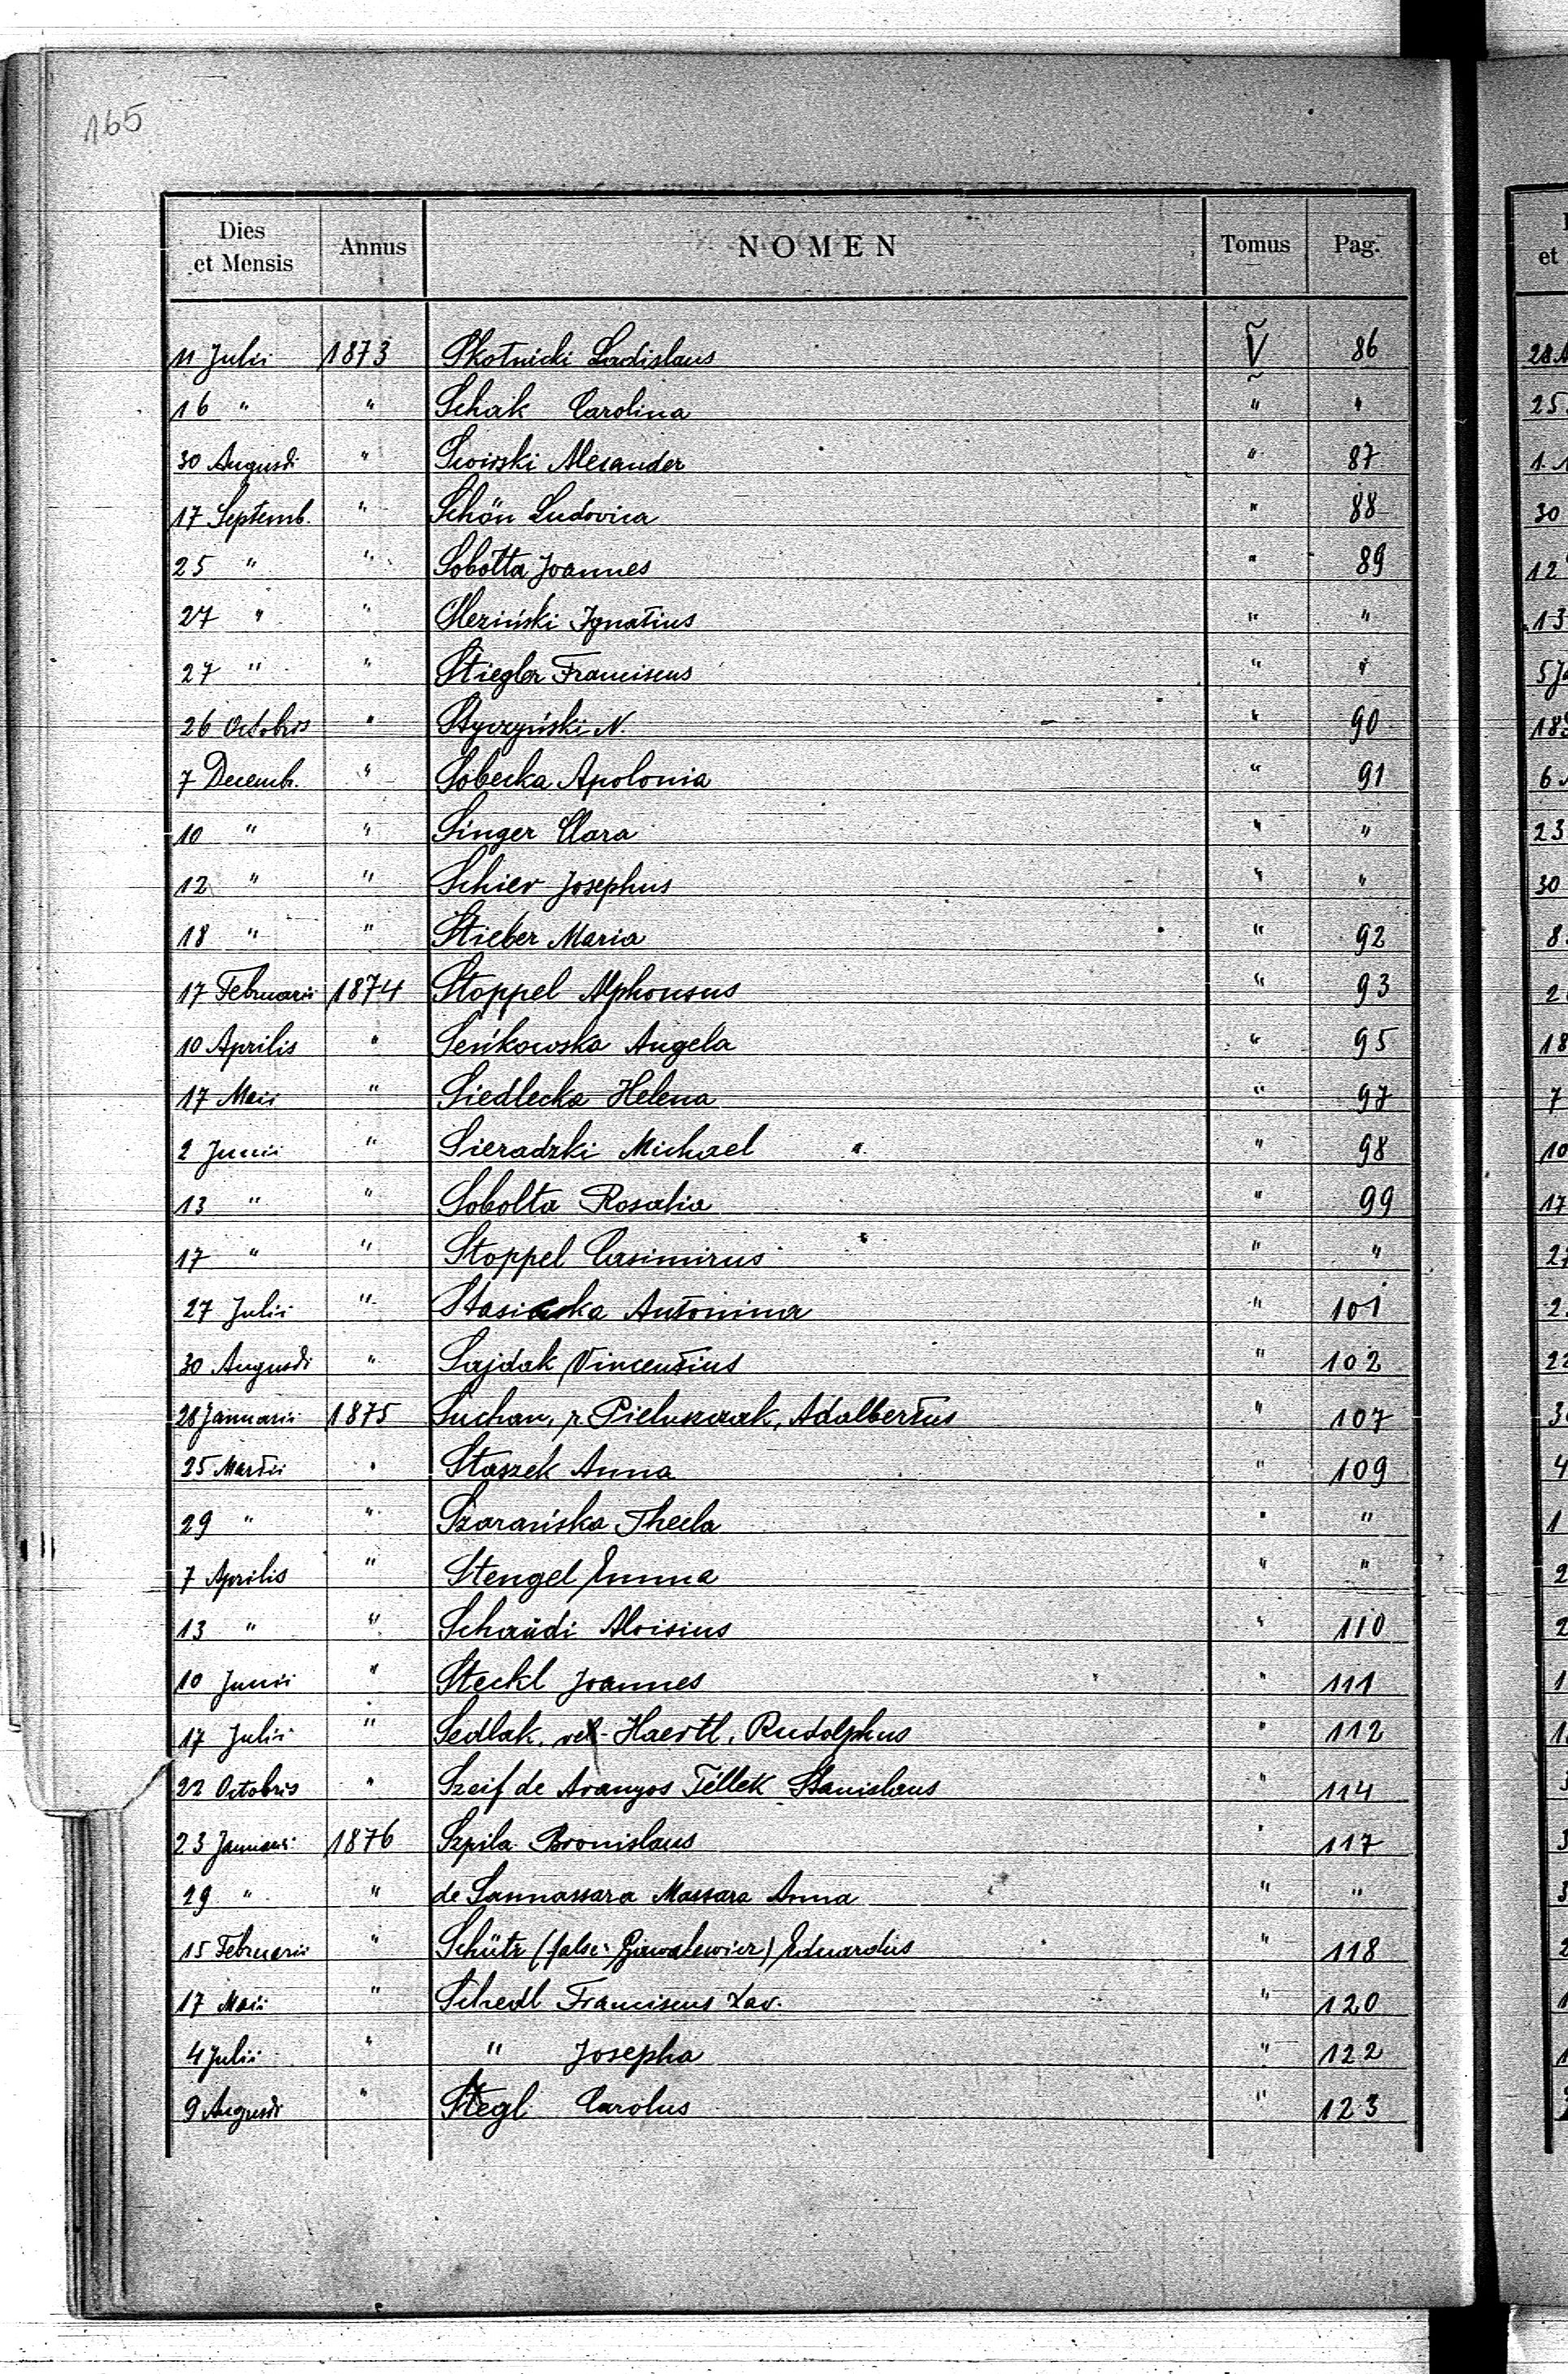 165
Dies et Mensis Annus NOMEN Tomus Pag.
11 Julii 1873 Skotnicki Ladislaus V 86
16 " " Schaik Carolina " "
30 Augusti " Swirski Alexander " 87
17 Septemb. " Schön Ludovica " 88
25 " " Sobotta Joannes " 89
27 " " Śleziński Ignatius " "
27 " " Stiegler Franciscus " "
26 Octobris " Styczyński N. " 90
7 Decemb. " Sobecka Apolonia " 91
10 " " Singer Clara " "
12 " " Schier Josephus " "
18 " " Stieber Maria " 92
17 Februarii 1874 Stoppel Alphonsus " 93
10 Aprilis " Seńkowska Angela " 95
17 Maii " Siedlecka Helena " 97
2 Junii " Sieradzki Michael " 98
13 " " Sobolta Rosalia " 99
17 " " Stoppel Casimirus " "
27 Julii " Antonina " 101
30 Augusti " Sajdak Vincentius " 102
28 Januarii 1875 Suchan, r. Pieluszczak, Adalbertus " 107
25 Martii " Staszek Anna " 109
29 " " Szarańska Thecla " "
7 Aprilis " Stengel Emma " "
13 " " Schaüdi Aloisius " 110
10 Junii " Steckl Joannes " 111
17 Julii " Sedlak, vel Haertl, Rudolphus " 112
22 Octobris " Szeif de Aranyos Téllek Stanislaus " 114
23 Januarii 1876 Szpila Bronislaus " 117
29 " " de Sannassara Massara Anna " "
15 Februarii " Schütz (false: ) Eduardus " 118
17 Maii " Schedl Franciscus Xav. " 120
4 Julii " " Josepha " 122
9 Augusti " Stegl Carolus " 123